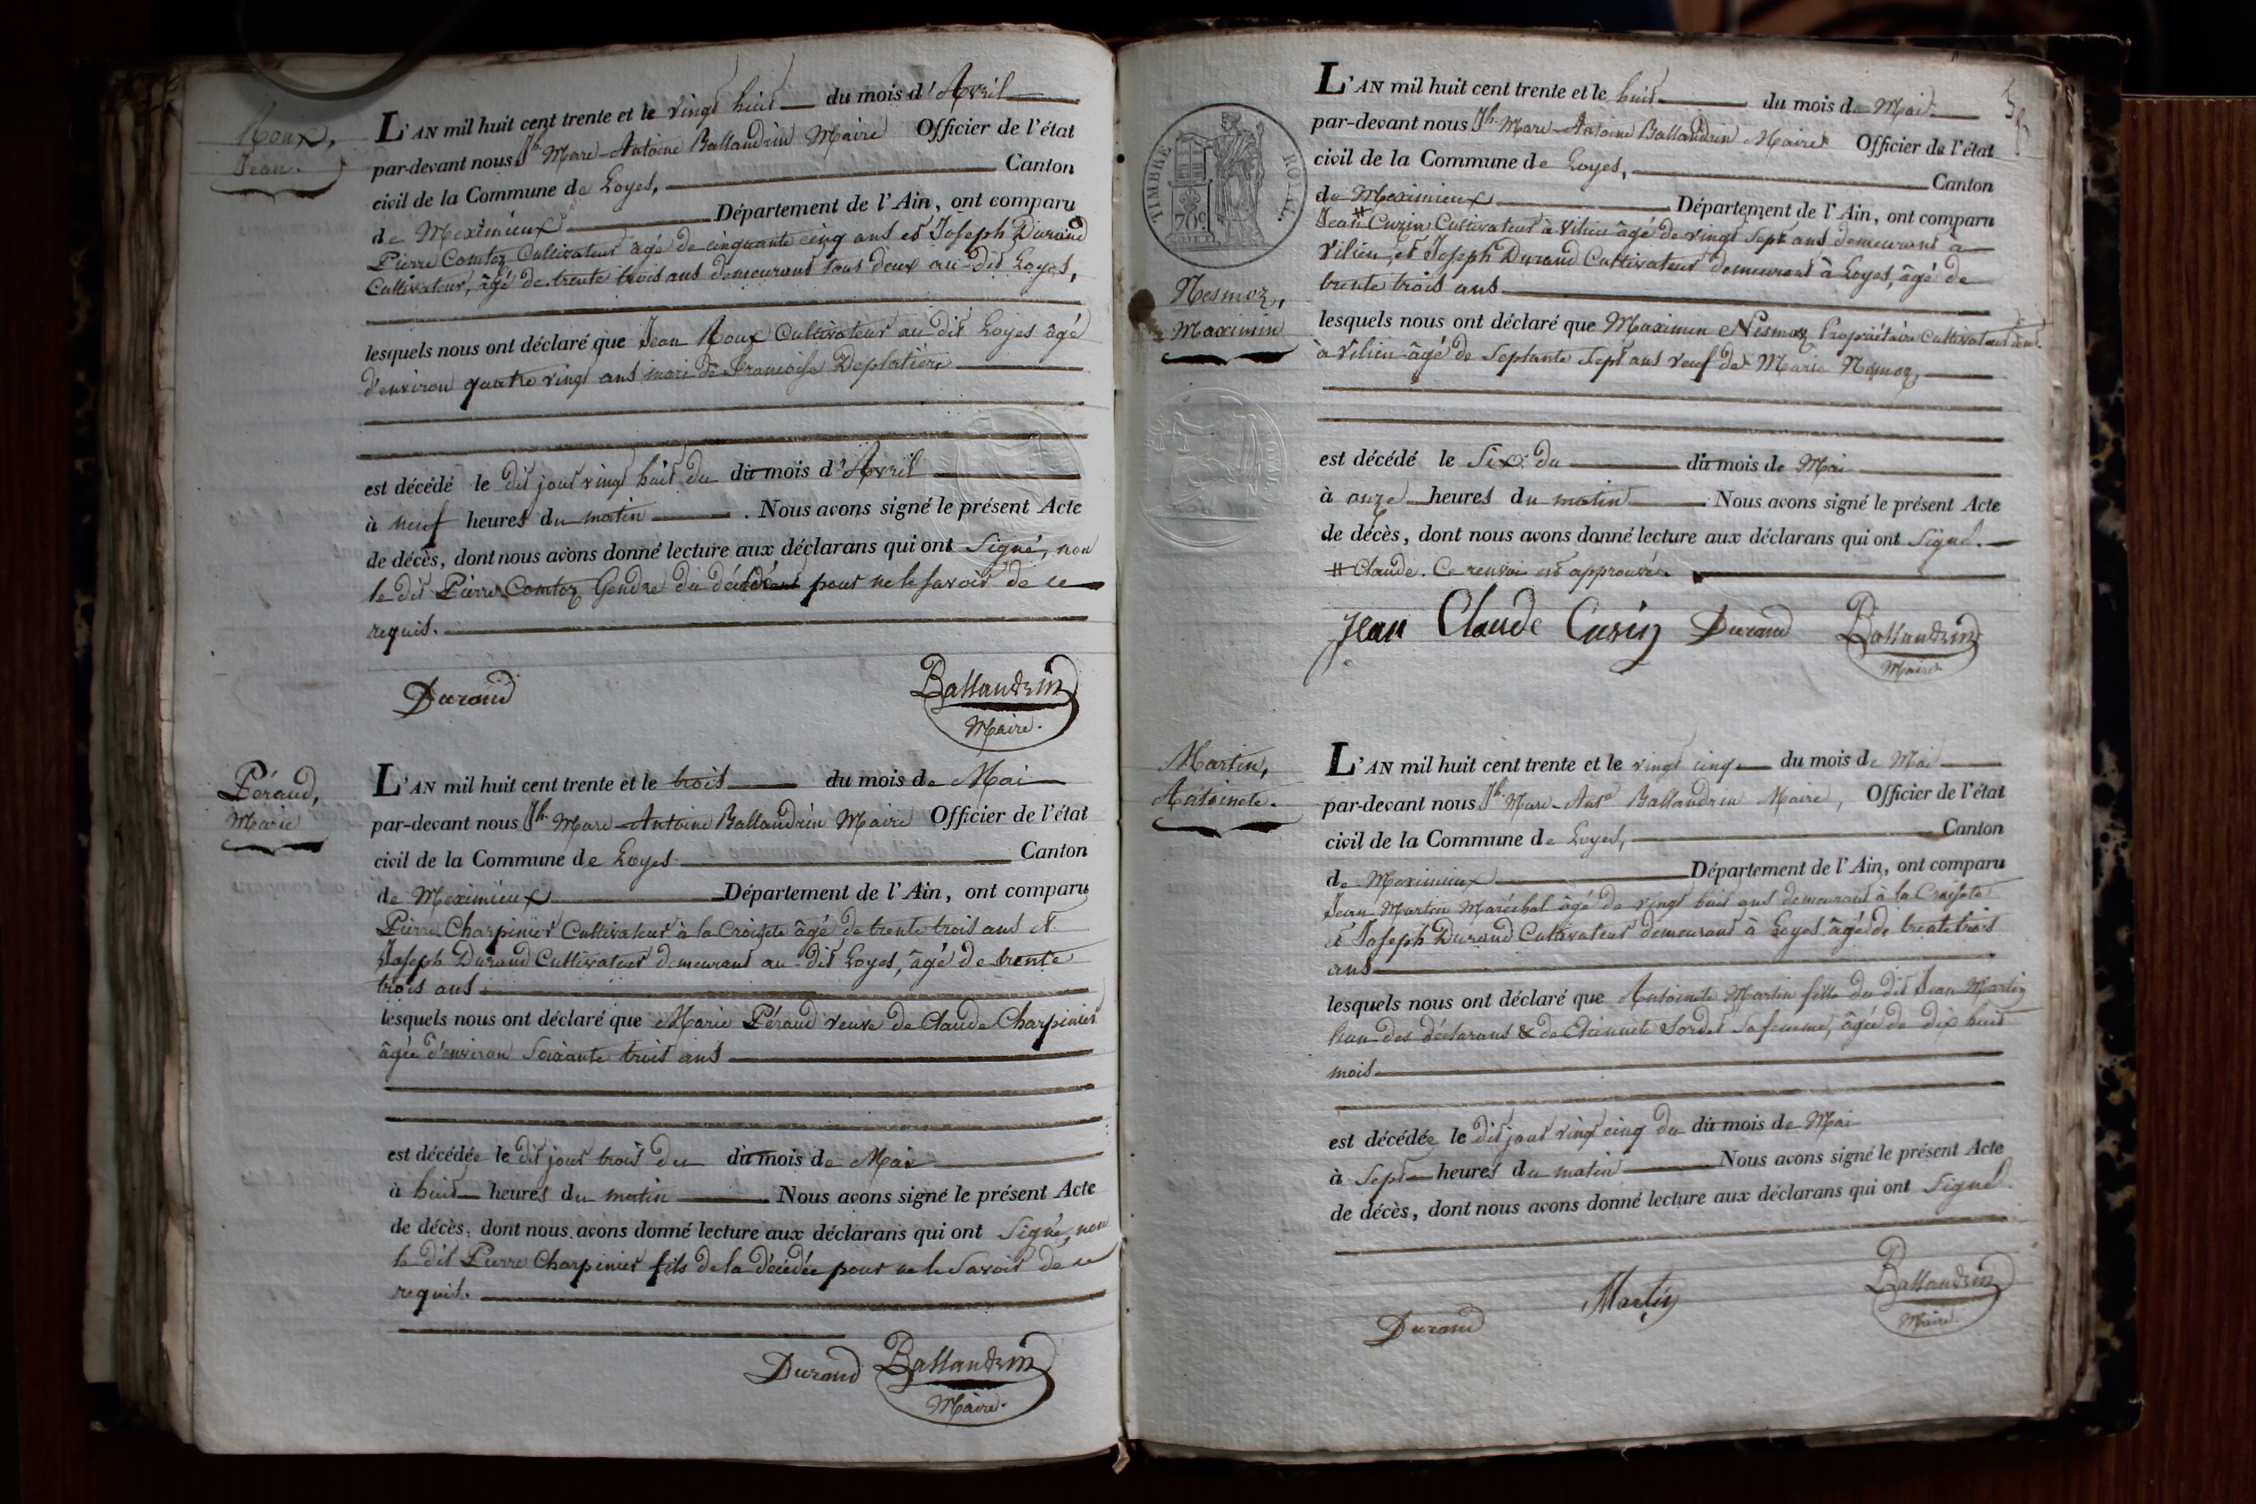 Roux,
Jean.
L'AN mil huit cent trente et le vingt huit du mois d'Avril
par-devant nous Jh. Marc-Antoine Ballandrin Maire Officier de l'état
civil de la Commune de Loyes, Canton
de Meximieux Département de l'Ain, ont comparu
Pierre Comtoz Cultivateur âgé de cinquante cinq ans et Joseph Durand
Cultivateur, âgé de trente trois ans demeurant tous deux au-dit Loyes,
lesquels nous ont déclaré que Jean Roux Cultivateur au dit Loyes âgé
d'environ quatre vingt ans mari de Francoise Deplatière
est décédé le dit jour vingt huit du du mois d'Avril
à neuf heures du matin . Nous avons signé le présent Acte
de décès, dont nous avons donné lecture aux déclarans qui ont Signé, non
le dit Pierre Comtoz Gendre du pour ne le savoir de ce
requis.
Durand
Ballandrin
Maire.
Péraud,
Marie
L'AN mil huit cent trente et le trois du mois de Mai
par-devant nous Jh. Marc-Antoine Ballandrin Maire Officier de l'état
civil de la Commune de Loyes Canton
de Meximieux Département de l'Ain, ont comparu
Pierre Charpinier Cultivateur à la Croisete âgé de trente trois ans et
Joseph Durand Cultivateur demeurant au-dit Loyes, âgé de trente
trois ans.
lesquels nous ont déclaré que Marie Péraud veuve de Claude Charpinier
âgée d'environ Soixante trois ans
est décédée le dit jour trois du du mois de Mai
à huit heures du matin . Nous avons signé le présent Acte
de décès, dont nous avons donné lecture aux déclarans qui ont Signé, non
le dit Pierre Charpinier fils de la décédée pour ne le Savoir de ce
requis.
Durand Ballandrin
Maire.
TIMBRE ROYAL
70c
Nesmoz,
Maximin
L'AN mil huit cent trente et le huit du mois de Mai
par-devant nous Jh. Marc-Antoine Ballandrin Maire Officier de l'état
civil de la Commune de Loyes, Canton
de Meximieux Département de l'Ain, ont comparu
Jean # Cuzin Cultivateur à Vilieu âgé de vingt sept ans demeurant à
Vilieu, et Joseph Durand Cultivateur demeurant à Loyes, âgé de
trente trois ans
lesquels nous ont déclaré que Maximin Nesmoz Propriétaire Cultivateur demt.
à Vilieu âgé de Septante Sept ans veuf de Marie Nesmoz,
est décédé le Six du du mois de Mai
à onze heures du matin . Nous avons signé le présent Acte
de décès, dont nous avons donné lecture aux déclarans qui ont Signé.
# Claude. Ce renvoi est approuvé.
Jean Claude Cusin Durand Ballandrin
Maire
Martin,
Antoinete.
L'AN mil huit cent trente et le vingt cinq du mois de Mai
par-devant nous Jh. Marc-Ante Ballandrin Maire, Officier de l'état
civil de la Commune de Loyes, Canton
de Meximieux Département de l'Ain, ont comparu
Jean Martin Maréchal âgé de vingt huit ans demeurant à la Croisete
et Joseph Durand Cultivateur demeurant à Loyes âgé de trente trois
ans
lesquels nous ont déclaré que Antoinete Martin fille du dit Jean Martin
l'un des déclarans & de Etiennete Sordet Sa femme, âgée de dix huit
mois
est décédée le dit jour vingt cinq du du mois de Mai
à Sept heures du matin . Nous avons signé le présent Acte
de décès, dont nous avons donné lecture aux déclarans qui ont Signé.
Durand Martin Ballandrin
Maire.